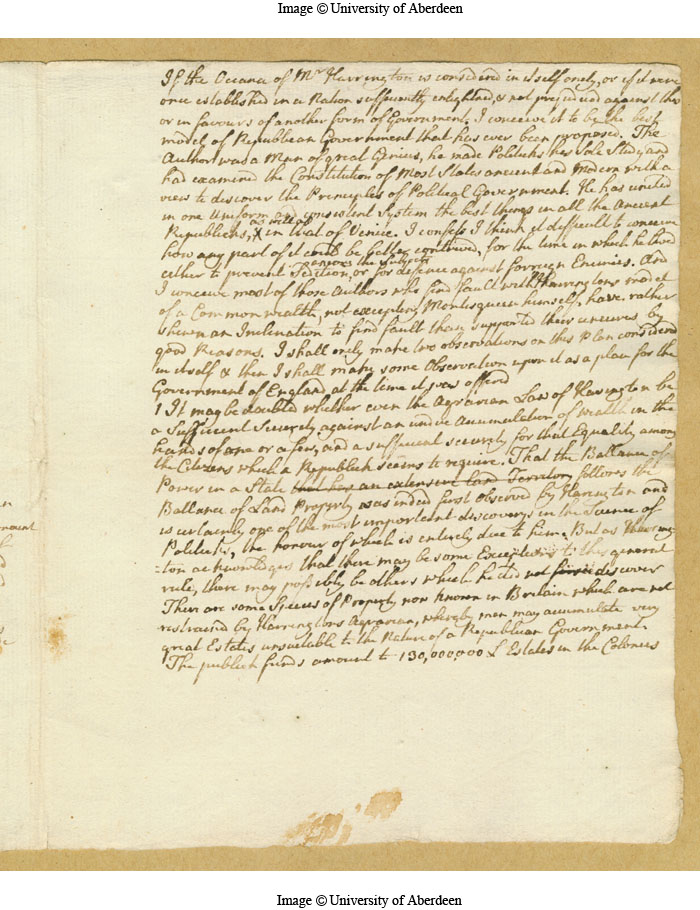 Image © University of Aberdeen
If the Oceana of Mr Harrington is considered in it self only, or if it were
once established in a Nation sufficiently enlightned, & not prejudiced against the
or in favours of another form of Government. I conceive it to be the best
model of Republican Government that has ever been proposed. The
Author was a Man of great Genius, he made Politicks his Sole Study and
had examined the Constitution of Most States ancient and Modern with a
view to discover the Principles of Political Government. He has united
in one Uniform and consistent System the best things in all the Ancient
as well as
Republicks, in that of Venice. I confess I think it difficult to conceive
how any part of it could be better contrived, for the time in which he lived
among the Subjects
either to prevent Sedition, or for defence against forreign Enemies. And
I conceive most of those Authors who find fault with Harringtons model
of a Common wealth, not excepting Montesqueu himself, have rather
shewn an Inclination to find fault than supported their censures by
good Reasons. I shall only make two observations on this Plan considered
in itself & then I shall make some Observation upon it as a plan for the
Government of England at the time it was offerd
1 It may be doubted whether even the Agrarian Law of Harington be
a Sufficient Security against an undue Accumulation of Wealth in the
hands of one or a few, and a sufficient security for that Equality among
the Citizens which a Republick seems to require. That the Ballance of
Power in a State that has an extensive land Territory follows the
Ballance of Land Property was indeed first observed by Harington and
is certainly one of the most important discoverys in the Science of
Politicks, the honour of which is entirely due to him. But as Harring
=ton acknowledges that there may be some Exceptions to this general
rule, there may possibly be others which he did not discover
There are some Species of Property now known in Britain which are not
restrained by Harringtons Agrarian, whereby men may accumulate very
great Estates unsuitable to the Nature of a Republican Government.
The publick funds amount to 130,000,000 £ Estates in the Colonies
mount
Image © University of Aberdeen